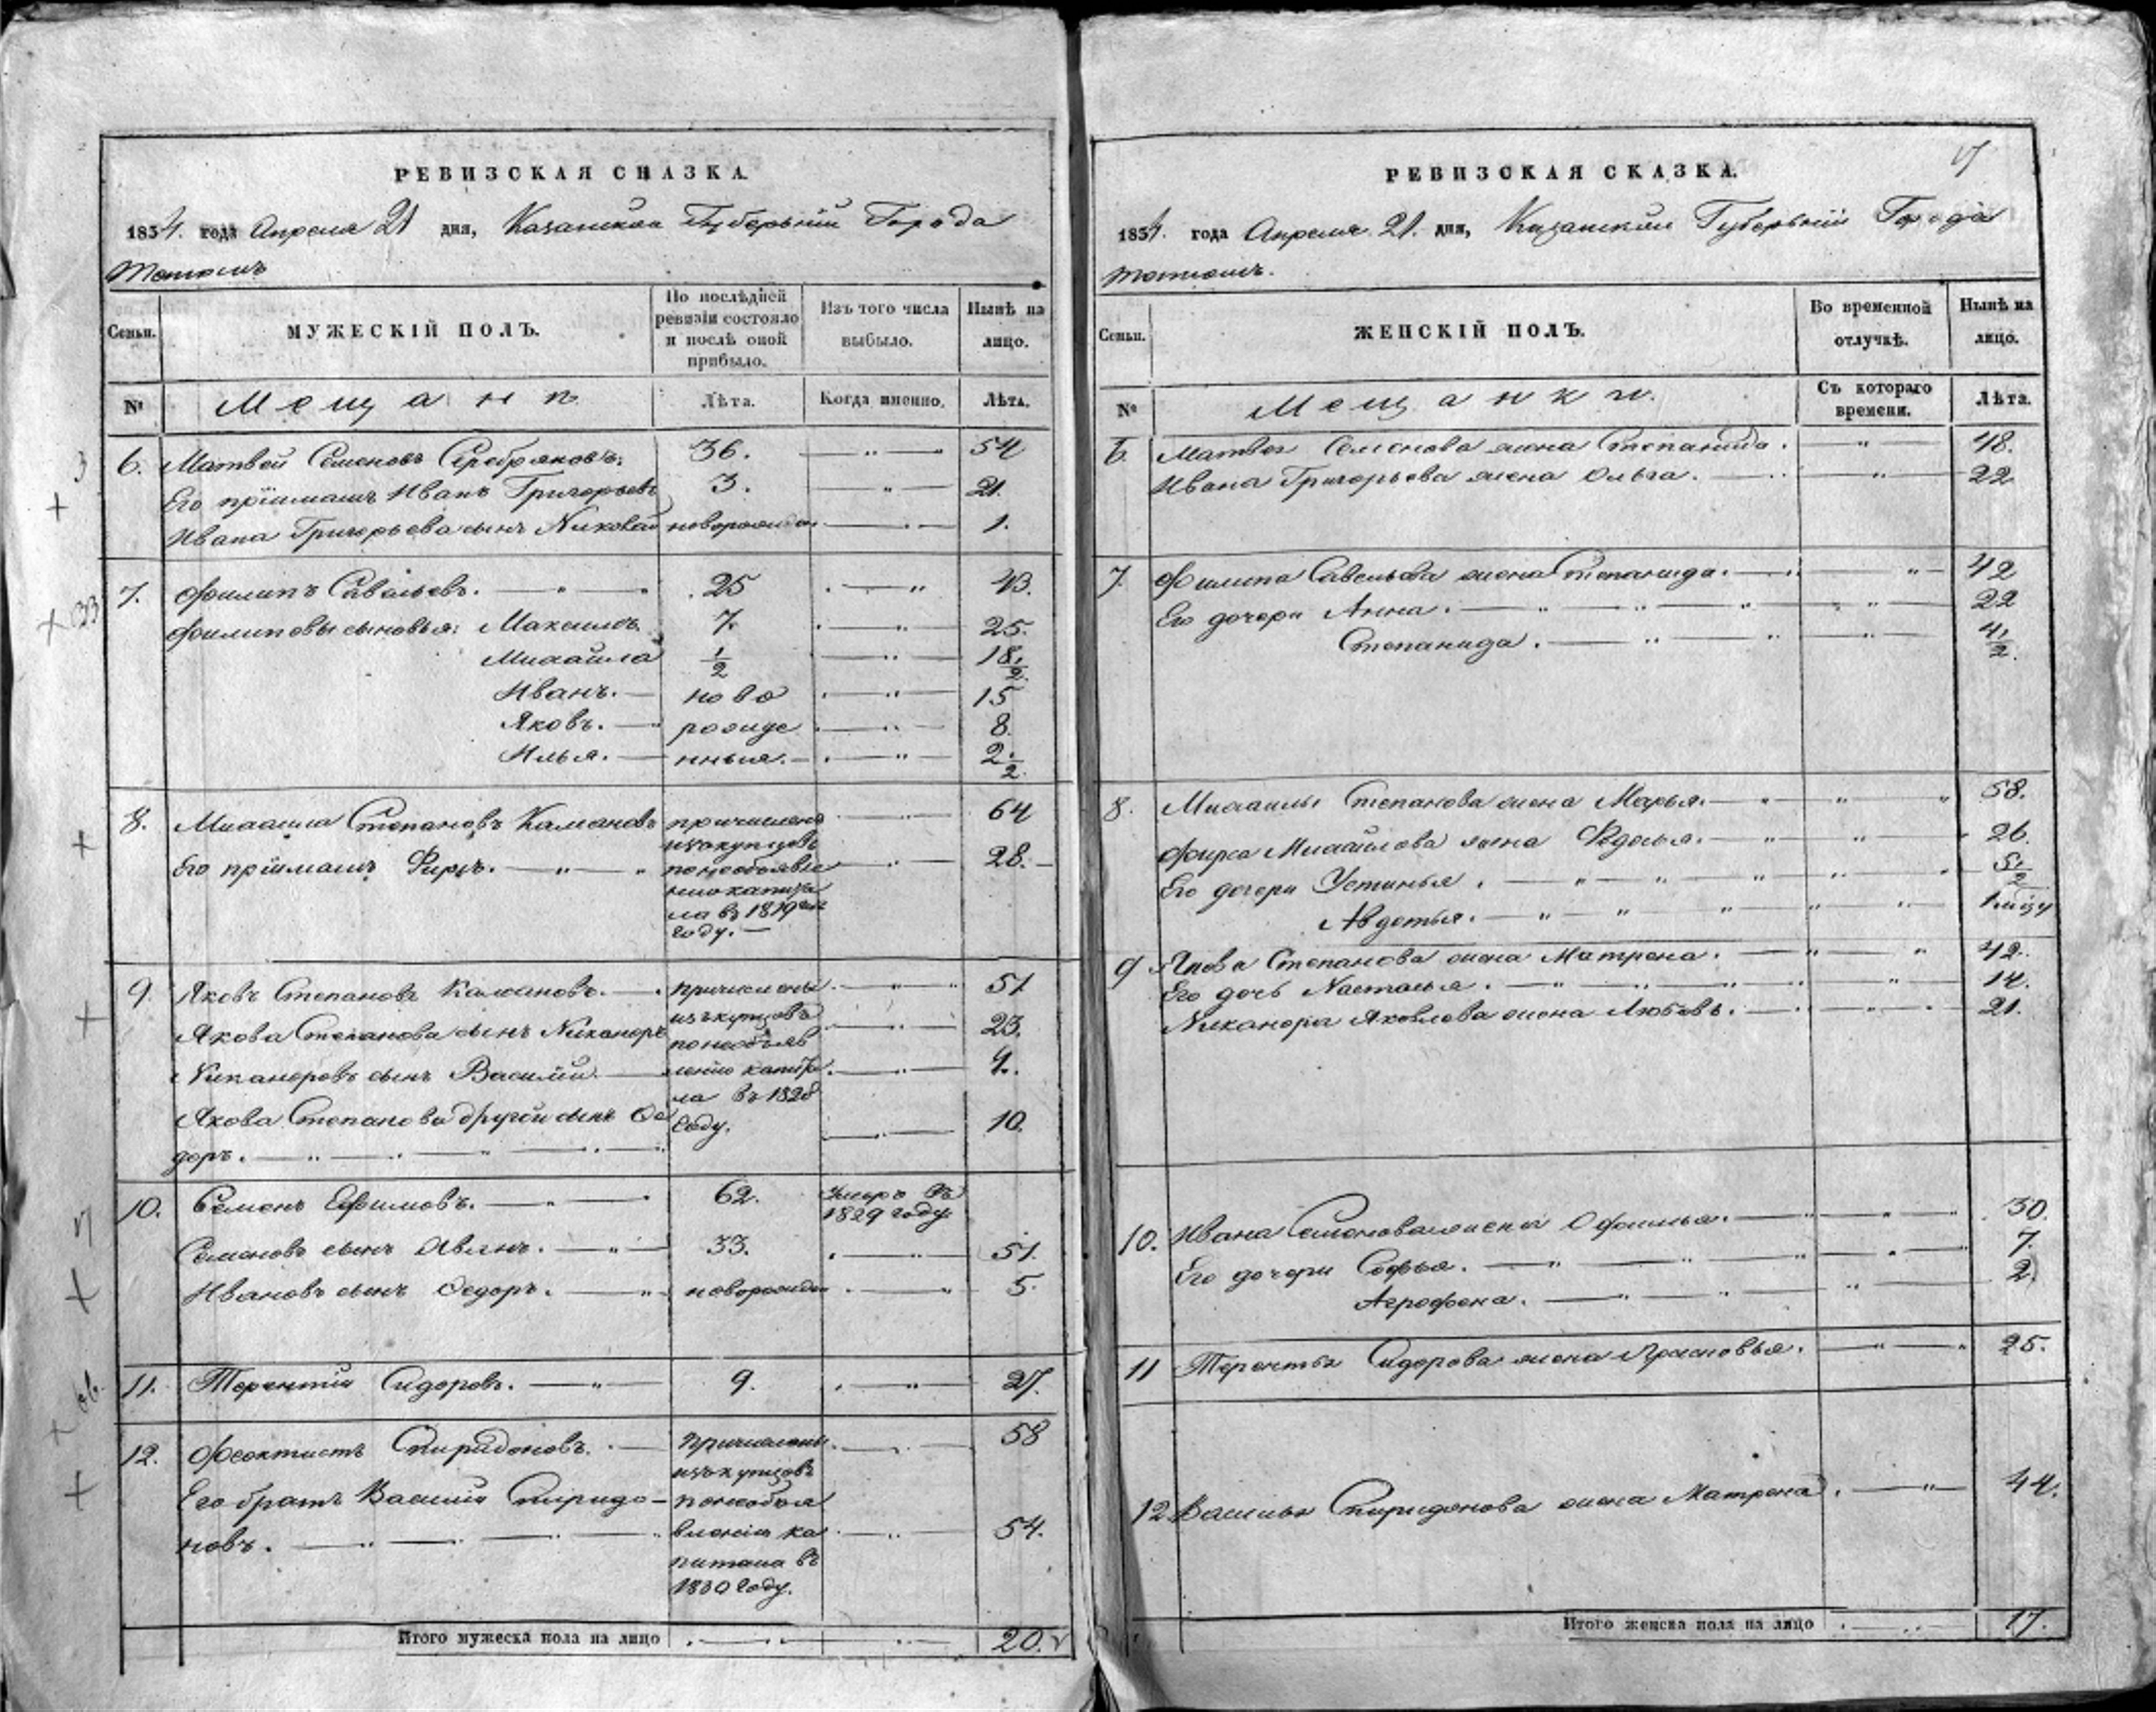 РЕВИЗСКАЯ СКАЗКА.
1834. года Апреля 21 дня, Казанской Губерьнии Города
Тетюшъ
Семьи.
МУЖЕСКІЙ ПОЛЪ.
По послѣдней
ревизіи состояло
и послѣ оной
прибыло.
Изъ того числа
выбыло.
Нынѣ на
лицо.
№
Мещани
Лѣта.
Когда именно.
Лѣта.
6. Матвей Семеновъ Серебряковъ. 36. 54
Его пріимышъ Иванъ Григорьевъ 3. 21.
Ивана Григорьева сынъ Николай новорожден 1.
7. Филипъ Савельевъ. 25 43.
Филиповы сыновья: Максимъ 7. 25.
Михайла 1/2 18 1/2.
Иванъ. ново 15
Яковъ. рожде 8.
Илья. нныя. 2 1/2.
8. Михаила Степановъ Калмановъ причислена 64
изъ купцовъ
Его пріимышъ Фирсъ. по необъявле 28.
нію капита
ла въ 1819
году.
9. Яковъ Степановъ причислены 51
изъ купцовъ
Якова Степанова сынъ Никаноръ по необъяв 23.
Никаноровъ сынъ Василій. лению капита
ла въ 1828
Якова Степанова другой сынъ Фе году. 10.
доръ.
10. Семенъ Ефимовъ. 62. Умеръ въ
1829 году
Семеновъ сынъ Иванъ. 33. 51.
Ивановъ сынъ Федоръ. новорожден 5.
11. Терентий Сидоровъ. 9. 27.
12. Феоктистъ Спиридоновъ. Причислены 58
изъ купцовъ
Его братъ Василий Спиридо- по необъя
новъ. вленію ка 54.
питала въ
1830 году.
Итого мужеска пола на лицо 20.
РЕВИЗСКАЯ СКАЗКА.
1834. года Апреля 21. дня, Казанской Губерьнии Города
Тетюшъ.
Семьи.
ЖЕНСКІЙ ПОЛЪ.
Во временной
отлучкѣ.
Нынѣ на
лицо.
№
Мещанки.
Съ котораго
времени.
Лѣта.
6. Матвея Семенова жена Степанида. 48.
Ивана Григорьева жена Ольга. 22
7. Филипа Савельева жена Степанида. 42
Его дочери Анна. 22
Степанида. 4 1/2.
8. Михаилы Степанова жена Марья. 58.
Фирса Михайлова жена Федосья. 26.
Его дочери Устинья. 5 1/2
Авдотья. 1
9 Якова Степанова жена Матрена. 42.
Его дочь Настасья. 14.
Никанора Яковлева жена Любовь. 21.
10. Ивана Семенова жена Офимья. 30.
Его дочери Софья. 7.
Агрофена. 2.
11 Терентья Сидорова жена Прасковья. 25.
12. Василья Спиридонова жена Матрена. 44.
Итого женска пола на лицо 17.